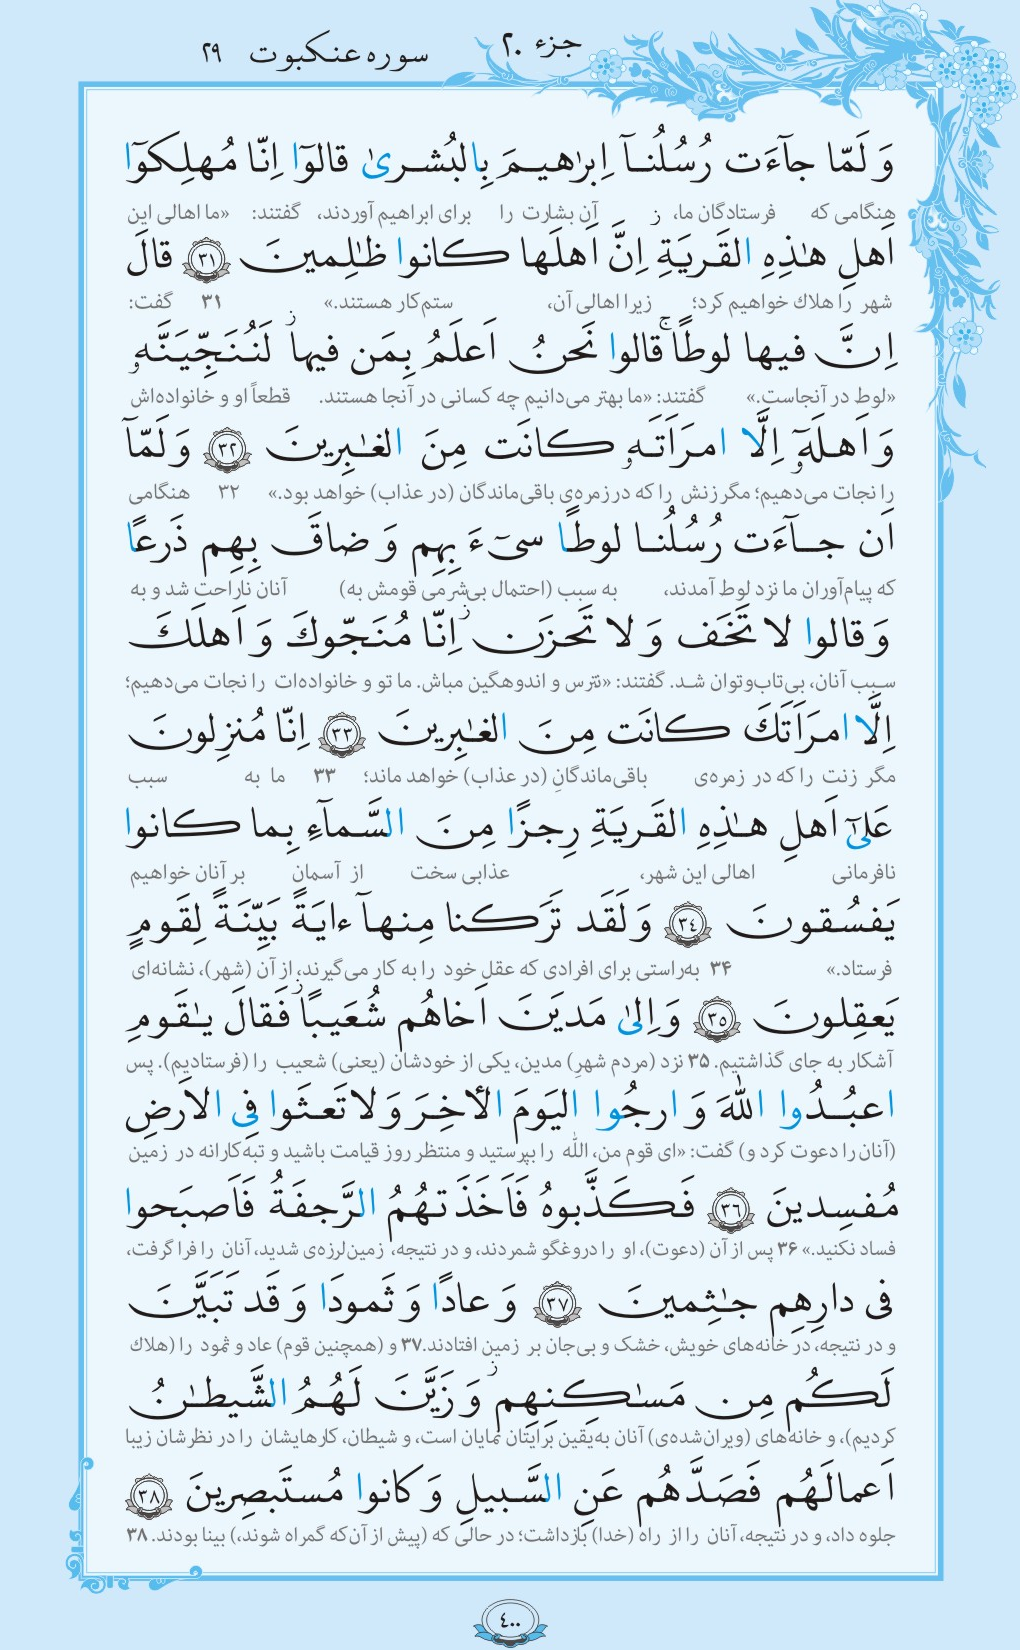 جزء ۲۰
سوره عنکبوت ۲۹
وَ لَمّا جآءَت رُسُلُنـآ اِبرٰهیـمَ بِالبُشـریٰ قالوٓا اِنّا مُهلِکوٓا
هنگامی که فرستادگان ما، آن بشارت را برای ابراهیم آوردند، گفتند: «ما اهالی این
اَهلِ هٰذِهِ القَریَةِ اِنَّ اَهلَها کانوا ظٰلِمینَ ﴿۳۱﴾ قالَ
شهر را هلاک خواهیم کرد؛ زیرا اهالی آن، ستم‌کار هستند.» ۳۱ گفت:
اِنَّ فیها لوطًا قالوا نَحنُ اَعلَمُ بِمَن فیها لَنُنَجِّیَنَّهو
«لوط در آنجاست.» گفتند: «ما بهتر می‌دانیم چه کسانی در آنجا هستند. قطعاً او و خانواده‌اش
وَ اَهلَهوٓ اِلَّا امرَاَتَهو کانَت مِنَ الغٰبِرینَ ﴿۳۲﴾ وَ لَمّآ
را نجات می‌دهیم؛ مگر زنش را که در زمره‌ی باقی‌ماندگان (در عذاب) خواهد بود.» ۳۲ هنگامی
اَن جـآءَت رُسُلُنـا لوطـًا سیٓءَ بِهِم وَ ضاقَ بِهِم ذَرعـًا
که پیام‌آوران ما نزد لوط آمدند، به سبب (احتمال بی‌شرمی قومش به) آنان ناراحت شد و به
وَ قالوا لا تَخَف وَ لا تَحزَن اِنّا مُنَجّوكَ وَ اَهلَكَ
سبب آنان، بی‌تاب‌وتوان شد. گفتند: «نترس و اندوهگین مباش. ما تو و خانواده‌ات را نجات می‌دهیم؛
اِلَّا امرَاَتَكَ کانَت مِنَ الغٰبِرینَ ﴿۳۳﴾ اِنّا مُنزِلونَ
مگر زنت را که در زمره‌ی باقی‌ماندگانِ (در عذاب) خواهد ماند؛ ۳۳ ما به سبب
عَلیٰٓ اَهلِ هٰـذِهِ القَریَةِ رِجزًا مِنَ السَّمآءِ بِما کانوا
نافرمانی اهالی این شهر، عذابی سخت از آسمان بر آنان خواهیم
یَفسُقونَ ﴿۳٤﴾ وَ لَقَد تَرَکنا مِنهآ ءایَةً بَیِّنَةً لِقَومٍ
فرستاد.» ۳۴ به‌راستی برای افرادی که عقل خود را به کار می‌گیرند، از آن (شهر)، نشانه‌ای
یَعقِلونَ ﴿۳٥﴾ وَ اِلیٰ مَدیَنَ اَخاهُم شُعَیبًا فَقالَ یـٰقَومِ
آشکار به جای گذاشتیم. ۳۵ نزد (مردم شهرِ) مدین، یکی از خودشان (یعنی) شعیب را (فرستادیم). پس
اعبُـدُوا اللّٰهَ وَ ارجُوا الیَومَ الأٓخِـرَ وَ لا تَعـثَوا فِی الاَرضِ
(آنان را دعوت کرد و) گفت: «ای قوم من، الله را بپرستید و منتظر روز قیامت باشید و تبه‌کارانه در زمین
مُفسِدینَ ﴿۳٦﴾ فَـکَـذَّبوهُ فَاَخَذَتهُمُ الرَّجفَةُ فَاَصبَحوا
فساد نکنید.» ۳۶ پس از آن (دعوت)، او را دروغگو شمردند، و در نتیجه، زمین‌لرزه‌ی شدید، آنان را فرا گرفت،
فی دارِهِم جـٰثِمینَ ﴿۳۷﴾ وَ عادًا وَ ثَمودَا وَ قَد تَبَیَّنَ
و در نتیجه، در خانه‌های خویش، خشک و بی‌جان بر زمین افتادند.۳۷ و (همچنین قوم) عاد و ثمود را (هلاک
لَکُم مِن مَسـٰکـنِهِم وَ زَیَّنَ لَهُمُ الشَّیطٰـنُ
کردیم)، و خانه‌های (ویران‌شده‌ی) آنان به‌یقین برایتان نمایان است، و شیطان، کارهایشان را در نظرشان زیبا
اَعمالَهُم فَصَدَّهُم عَنِ السَّبیلِ وَ کانوا مُستَبصِرینَ ﴿۳۸﴾
جلوه داد، و در نتیجه، آنان را از راه (خدا) بازداشت؛ در حالی که (پیش از آن‌که گمراه شوند،) بینا بودند. ۳۸
٤۰۰